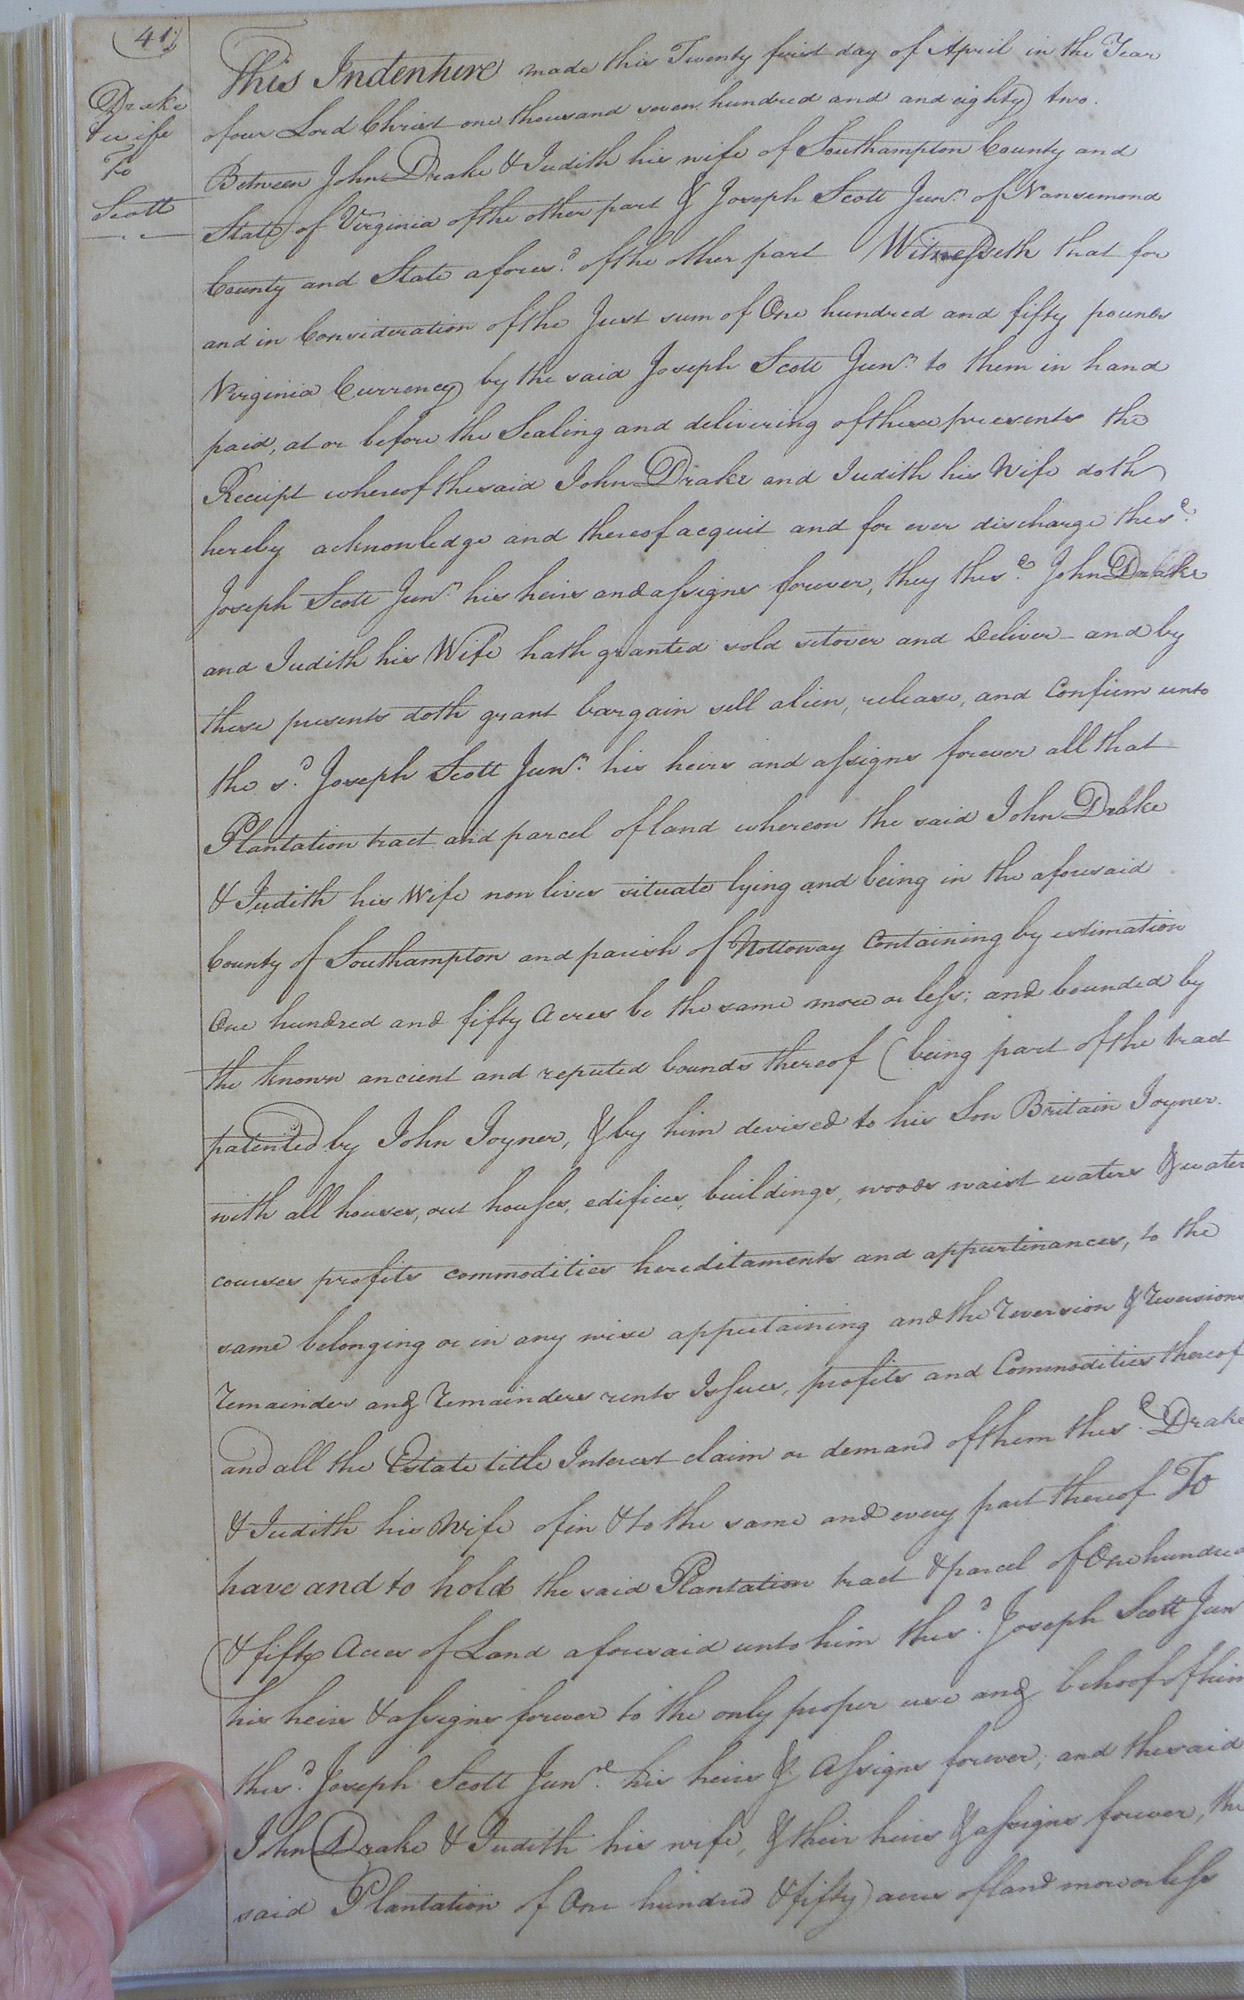 412
Drake
& wife
To
Scott
This Indenture made this Twenty first day of April in the Year
of our Lord Christ one thousand seven hundred and and eighty two.
Between John Drake & Judith his wife of Southampton County and
State of Virginia of the other part & Joseph Scott Junr. of Nansemond
County and State afores.d of the other part Witnesseth that for
and in Consideration of the Just sum of One hundred and fifty pounds
Virginia Currency by the said Joseph Scott Junr. to them in hand
paid, at or before the Sealing and delivering of these presents the
Receipt whereof the said John Drake and Judith his Wife doth
hereby acknowledge and thereof acquit and for ever discharge the s.d
Joseph Scott Junr. his heirs and assigns forever, they the s.d John Drake
and Judith his Wife hath granted sold setover and Deliver and by
these presents doth grant bargain sell alien, release, and Confirm unto
the s.d Joseph Scott Junr. his heirs and assigns forever all that
Plantation tract and parcel of land whereon the said John Drake
& Judith his Wife now lives situate lying and being in the aforesaid
County of Southampton and parish of Nottoway Containing by estimation
One hundred and fifty Acres be the same more or less; and bounded by
the known ancient and reputed bounds thereof (being part of the tract
patented by John Joyner, & by him devised to his Son Britain Joyner.
with all houses, out houses, edifices, buildings, woods waist waters & water
courses profits commodities hereditaments and appurtinances, to the
same belonging or in any wise appertaining and the reversion & reversions
remainder and remainders rents Issues, profits and Commodities thereof
and all the Estate title Interest claim or demand of them the s.d Drake
& Judith his Wife of in & to the same and every part thereof To
have and to hold the said Plantation tract & parcel of One hundred
& fifty Acres of Land aforesaid unto him the s.d Joseph Scott Junr
his heirs & assigns forever to the only proper use and behoof of him
the s.d Joseph Scott Junr. his heirs & Assigns forever; and the said
John Drake & Judith his wife, & their heirs & assigns forever, the
said Plantation of One hundred & fifty acres of land more or less